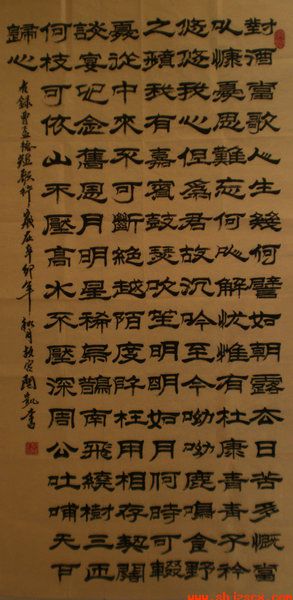 對酒當歌人生幾何譬如朝露去日苦多慨當
以慷憂思難忘何以解憂惟有杜康青青子衿
悠悠我心但為君故沉吟至今呦呦鹿鳴食野
之蘋我有嘉賓鼓瑟吹笙明明如月何時可輟
憂從中來不可斷絕越陌度阡枉用相存契闊
談宴心念舊恩月明星稀烏鵲南飛繞樹三匝
何枝可依山不厭高水不厭深周公吐哺天下
歸心
錄曹孟德短歌行歲在辛卯年月書